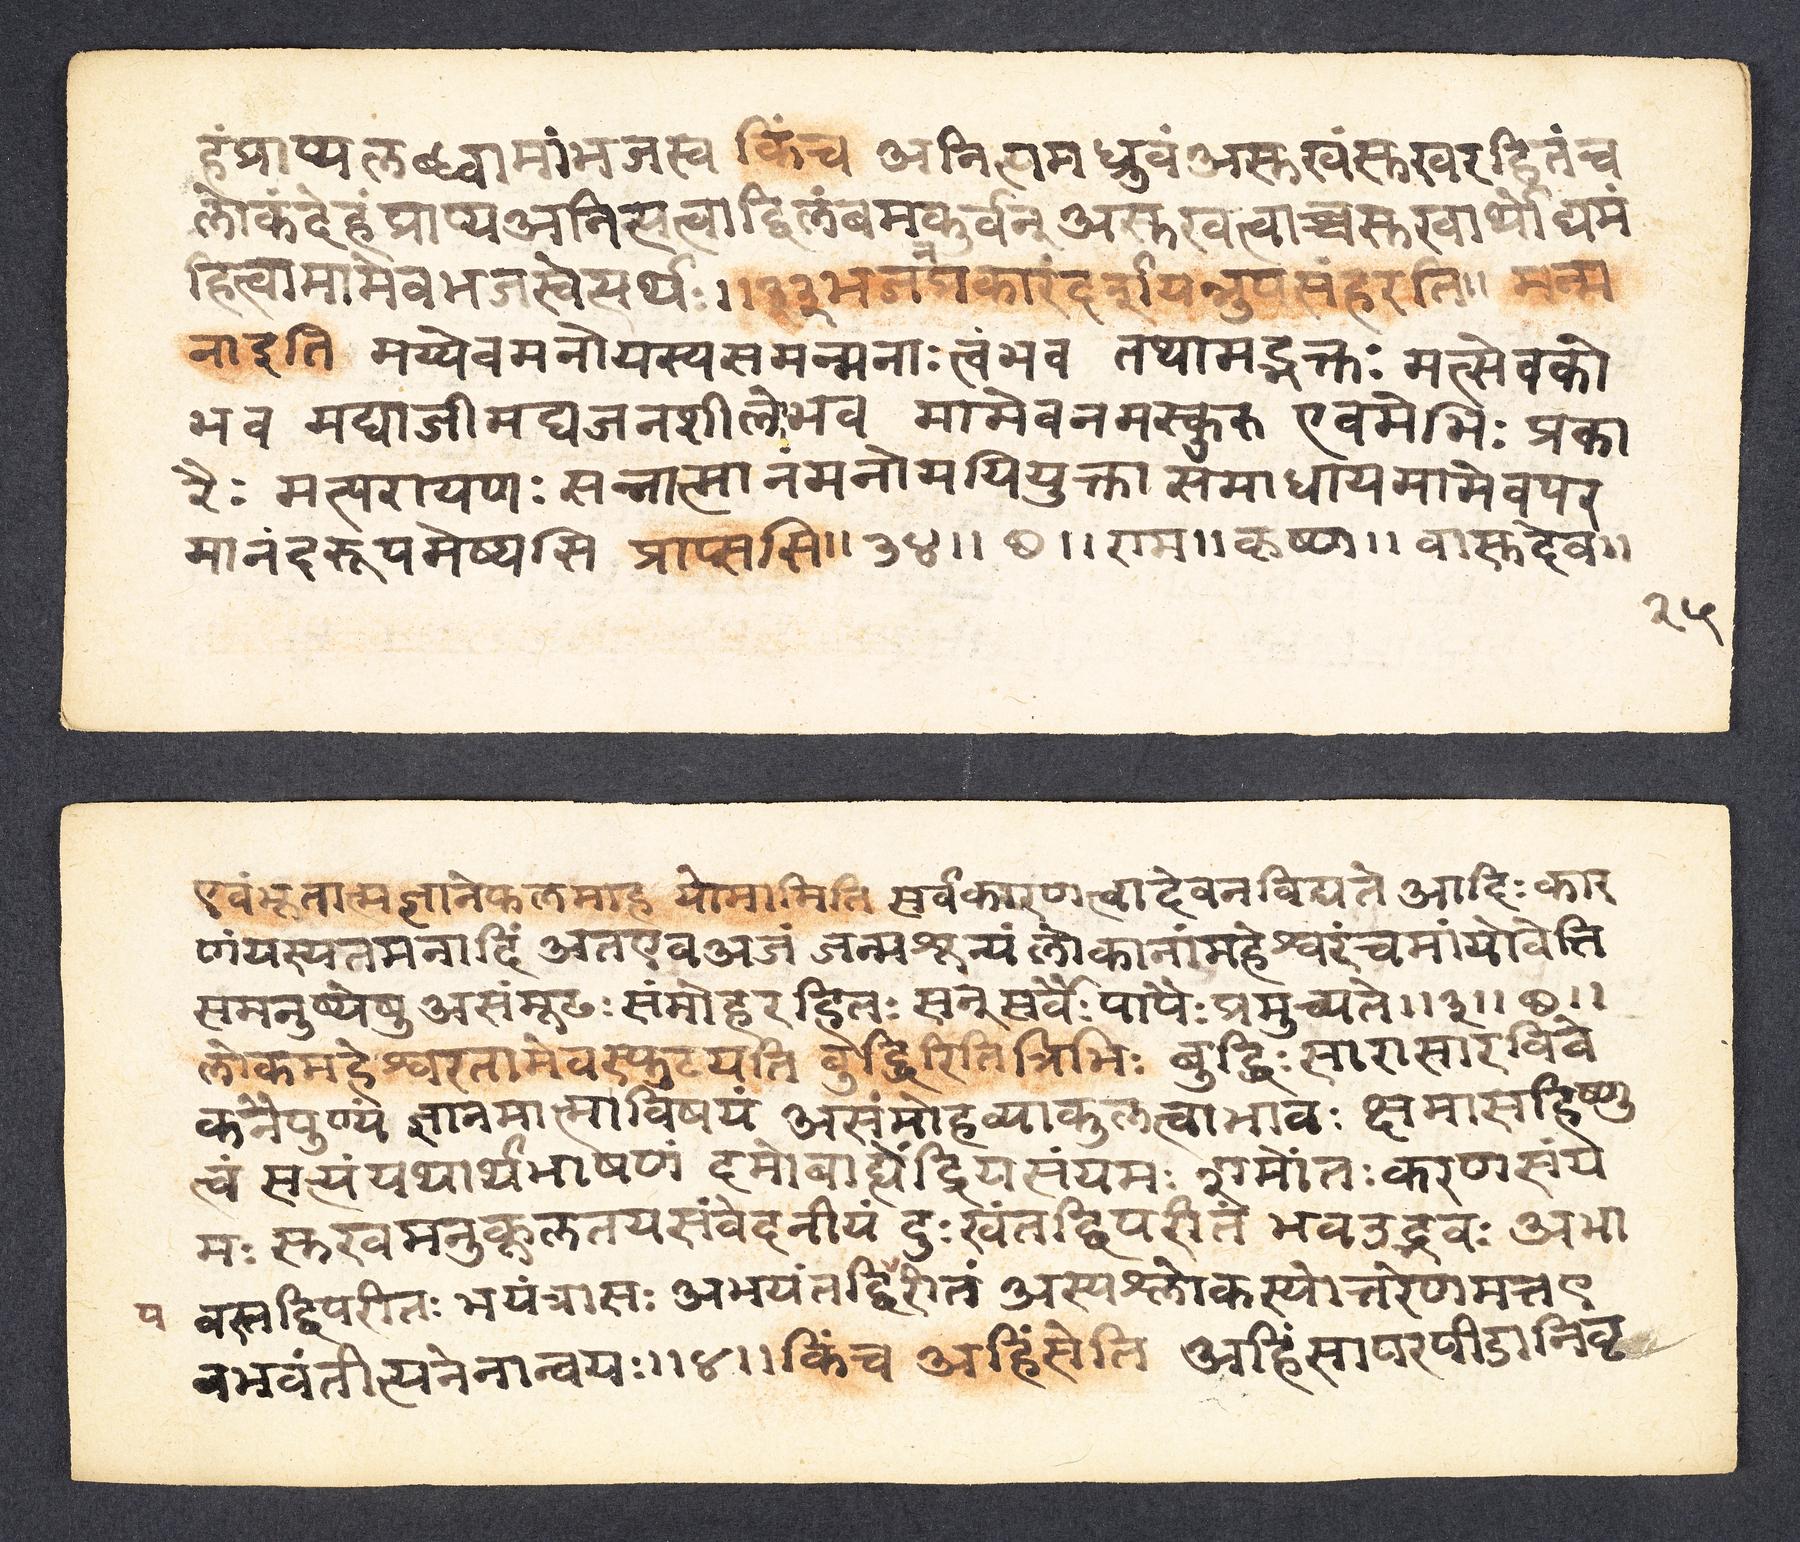 हंप्राप्यलब्ध्वामांभजस्व किंच अनित्यमध्रुवंअसुखंसुखरहितंच
लोकंदेहंप्राप्यअनित्यत्वाद्विलंबमकुर्वन् असुखत्वाच्चसुखार्थोद्यमं
हित्वामामेवभजस्वेत्यर्थः।।३३भजनप्रकारंदर्शयन्नुपसंहरति॥ मन्म
नाइति मय्येवमनोयस्यसमन्मनाः त्वंभव तथामद्भक्तः मत्सेवको
भव मद्याजीमद्यजनशीलोभव मामेवनमस्कुरु एवमेभिः प्रका
रैः मत्परायणः सन्नात्मानंमनोमयियुक्त्वा समाधायमामेवपर
मानंदरूपमेष्यसि प्राप्ससि॥ ३४।। छ ।। राम।। कृष्ण।। वासुदेव॥
२५
एवंभूतात्मज्ञानेफलमाह योमामिति सर्वकारणत्वादेवनविद्यते आदिः कार
णंयस्यतमनादिं अतएवअजं जन्मशून्यं लोकानांमहेश्वरंचमांयोवेत्ति
समनुष्येषु असंमूढः संमोहरहितः सन् सर्वैः पापैः प्रमुच्यते।।३।। छ।।
लोकमहेश्वरतामेवस्फुटयति बुद्धिरितित्रिभिः बुद्धिः सारासारविवे
कनैपुण्यं ज्ञानमात्माविषयं असंमोहव्याकुलत्वाभावः क्षमासहिष्णु
त्वं सत्यं यथार्थभाषणं दमोबाह्येंद्रियसंयमः शमोंतःकरणसंय
मः सुखमनुकूलतयसंवेदनीयं दुःखंतद्विपरीतं भवउद्भवः अभा
वस्तद्विपरीतः भयंत्रासः अभयंतद्विरीतं अस्यश्लोकस्योत्तरेणमत्तए
प
वभवंतीत्यनेनान्वयः।।४।। किंच अहिंसेति अहिंसापरपीडानिवृ